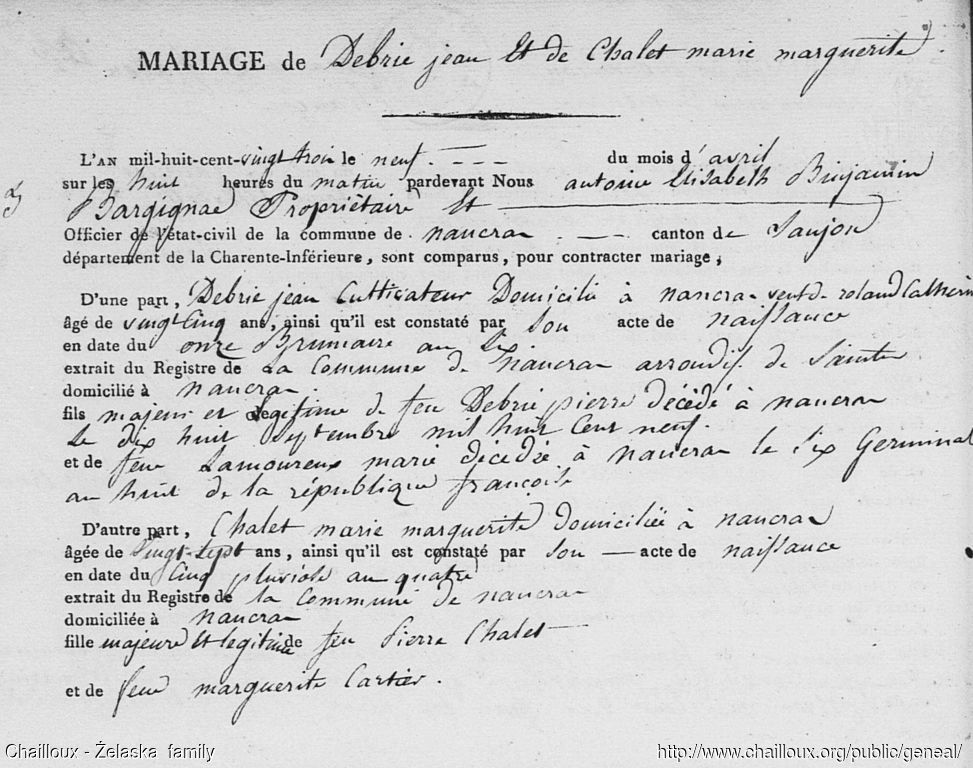 MARIAGE de Debrie jean Et de Chalet marie marguerite
L'AN mil-huit-cent-vingt trois le neuf. - - - du mois d'avril
sur les huit heures du matin pardevant Nous antoine Elisabeth Binjamin
Bargignac Propriétaire Et
Officier de l'état-civil de la commune de nancras - - - canton de Saujon
département de la Charente-Inférieure, sont comparus, pour contracter mariage,
D'une part, Debrie jean Cultivateur Domicilié à nancras veuf de roland Catherin
âgé de vingt Cinq ans, ainsi qu'il est constaté par Son acte de naissance
en date du onze Brumaire an Six
extrait du Registre de La Commune de Nancras arrondisf. de Sainte
domicilié à nancras.
fils majeur et Legitime de feu Debrie pierre décédé à nancras
Le dix huit Septembre mil huit Cent neuf.
et de féue Lamoureux marie décédée à nancras le Six Germinal
an huit de la république françoise
D'autre part, Chalet marie marguerite domiciliée à nancras
âgée de vingt-Sept ans, ainsi qu'il est constaté par Son — acte de naissance
en date du Cinq pluviose an quatre
extrait du Registre de la Commune de nancras
domiciliée à nancras
fille majeure Et legitime de feu Pierre Chalet
et de feue marguerite Cartier.
Chailloux - Żelaska family http://www.chailloux.org/public/geneal/